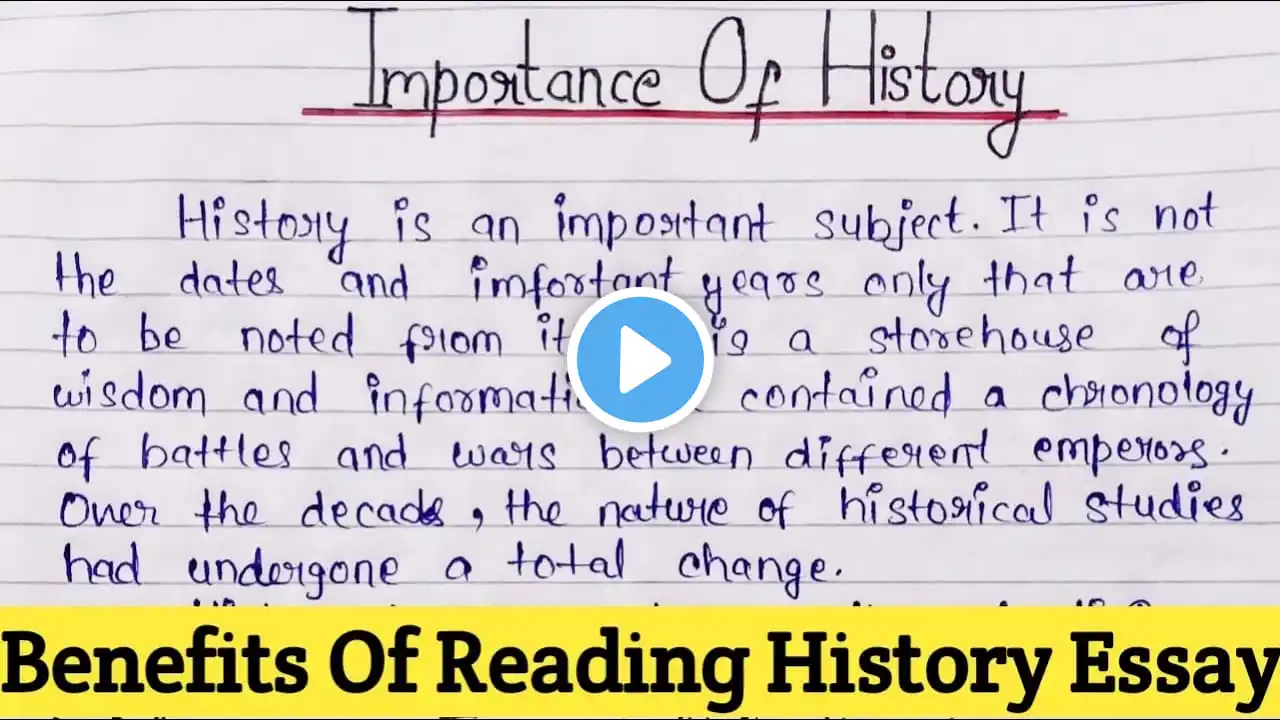 Importance Of History
History is an important subject. It is not
the dates and imfortant years only that are
to be noted from it is a storehouse of
wisdom and contained a chronology
of battles and wars between different emperors.
Over the decads, the nature of historical studies
had undergone a total change.
Benefits Of Reading History Essay